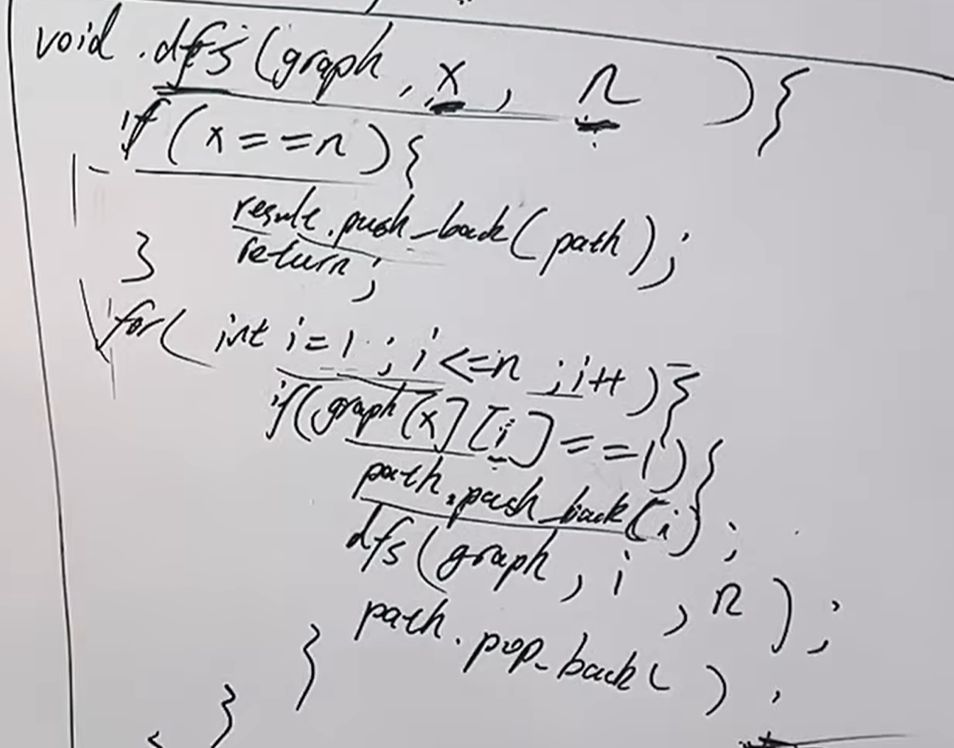 void dfs(graph, x, n){
if(x==n){
result.push_back(path);
return;
}
for(int i=1; i<=n; i++){
if(graph[x][i]==1){
path.push_back(i);
dfs(graph, i, n);
path.pop_back();
}
}